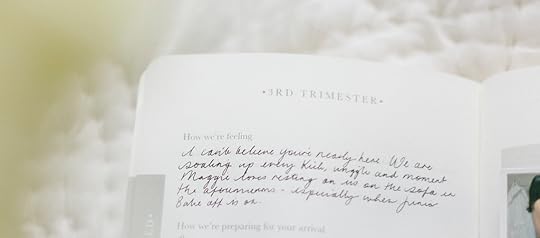 •3RD TRIMESTER•
How we're feeling
I can't believe you're nearly here. We are
soaking up every kick, wriggle and moment.
Maggie loves resting on us on the sofa in
the afternoons - especially when Junior
Bake Off is on.
How we're preparing for your arrival